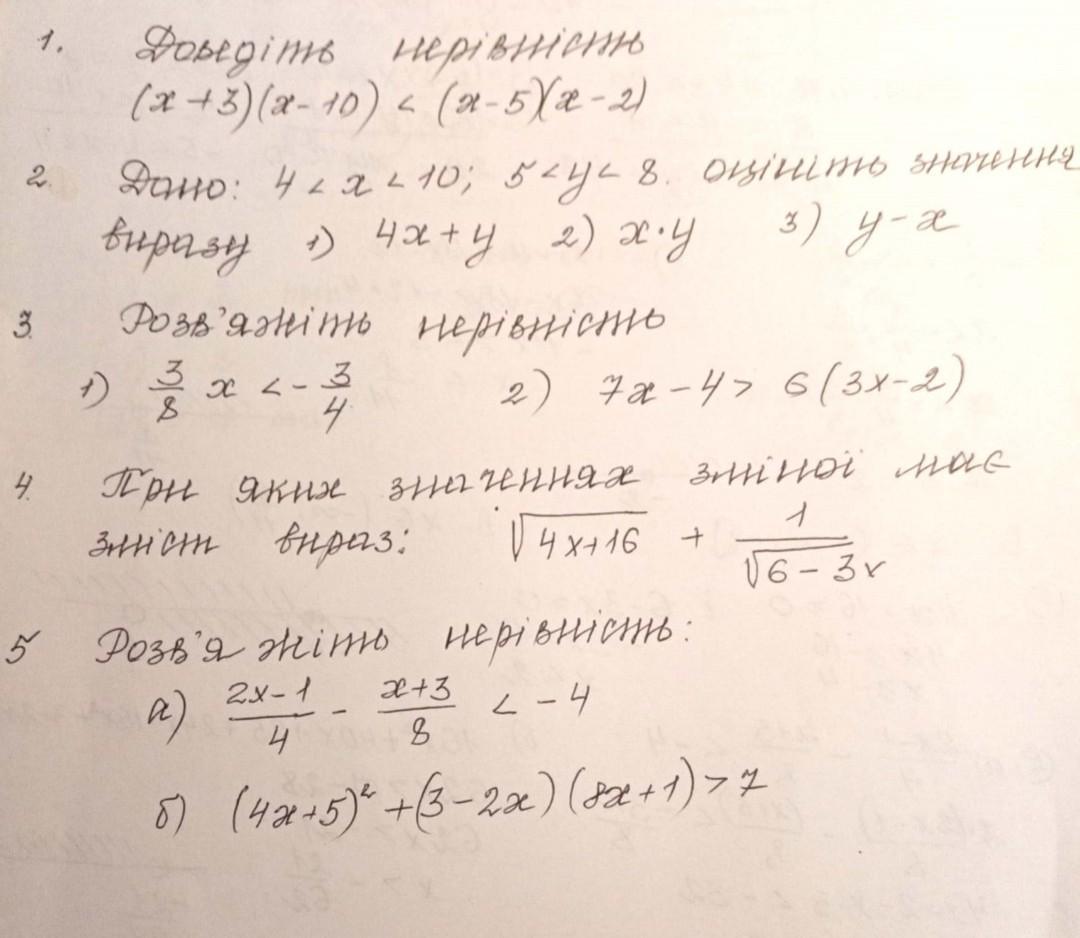 1. Доведіть нерівність
(x+3)(x-10) < (x-5)(x-2)
2. Дано: 4 < x < 10; 5 < y < 8. оцініть значення
виразу 1) 4x+y 2) x·y 3) y-x
3. Розв'яжіть нерівність
1) 3/8 x < - 3/4 2) 7x-4 > 6(3x-2)
4. При яких значеннях зміної має
зміст вираз: √(4x+16) + 1/√(6-3x)
5 Розв'яжіть нерівність:
а) (2x-1)/4 - (x+3)/8 < -4
б) (4x+5)² + (3-2x)(8x+1) > 7